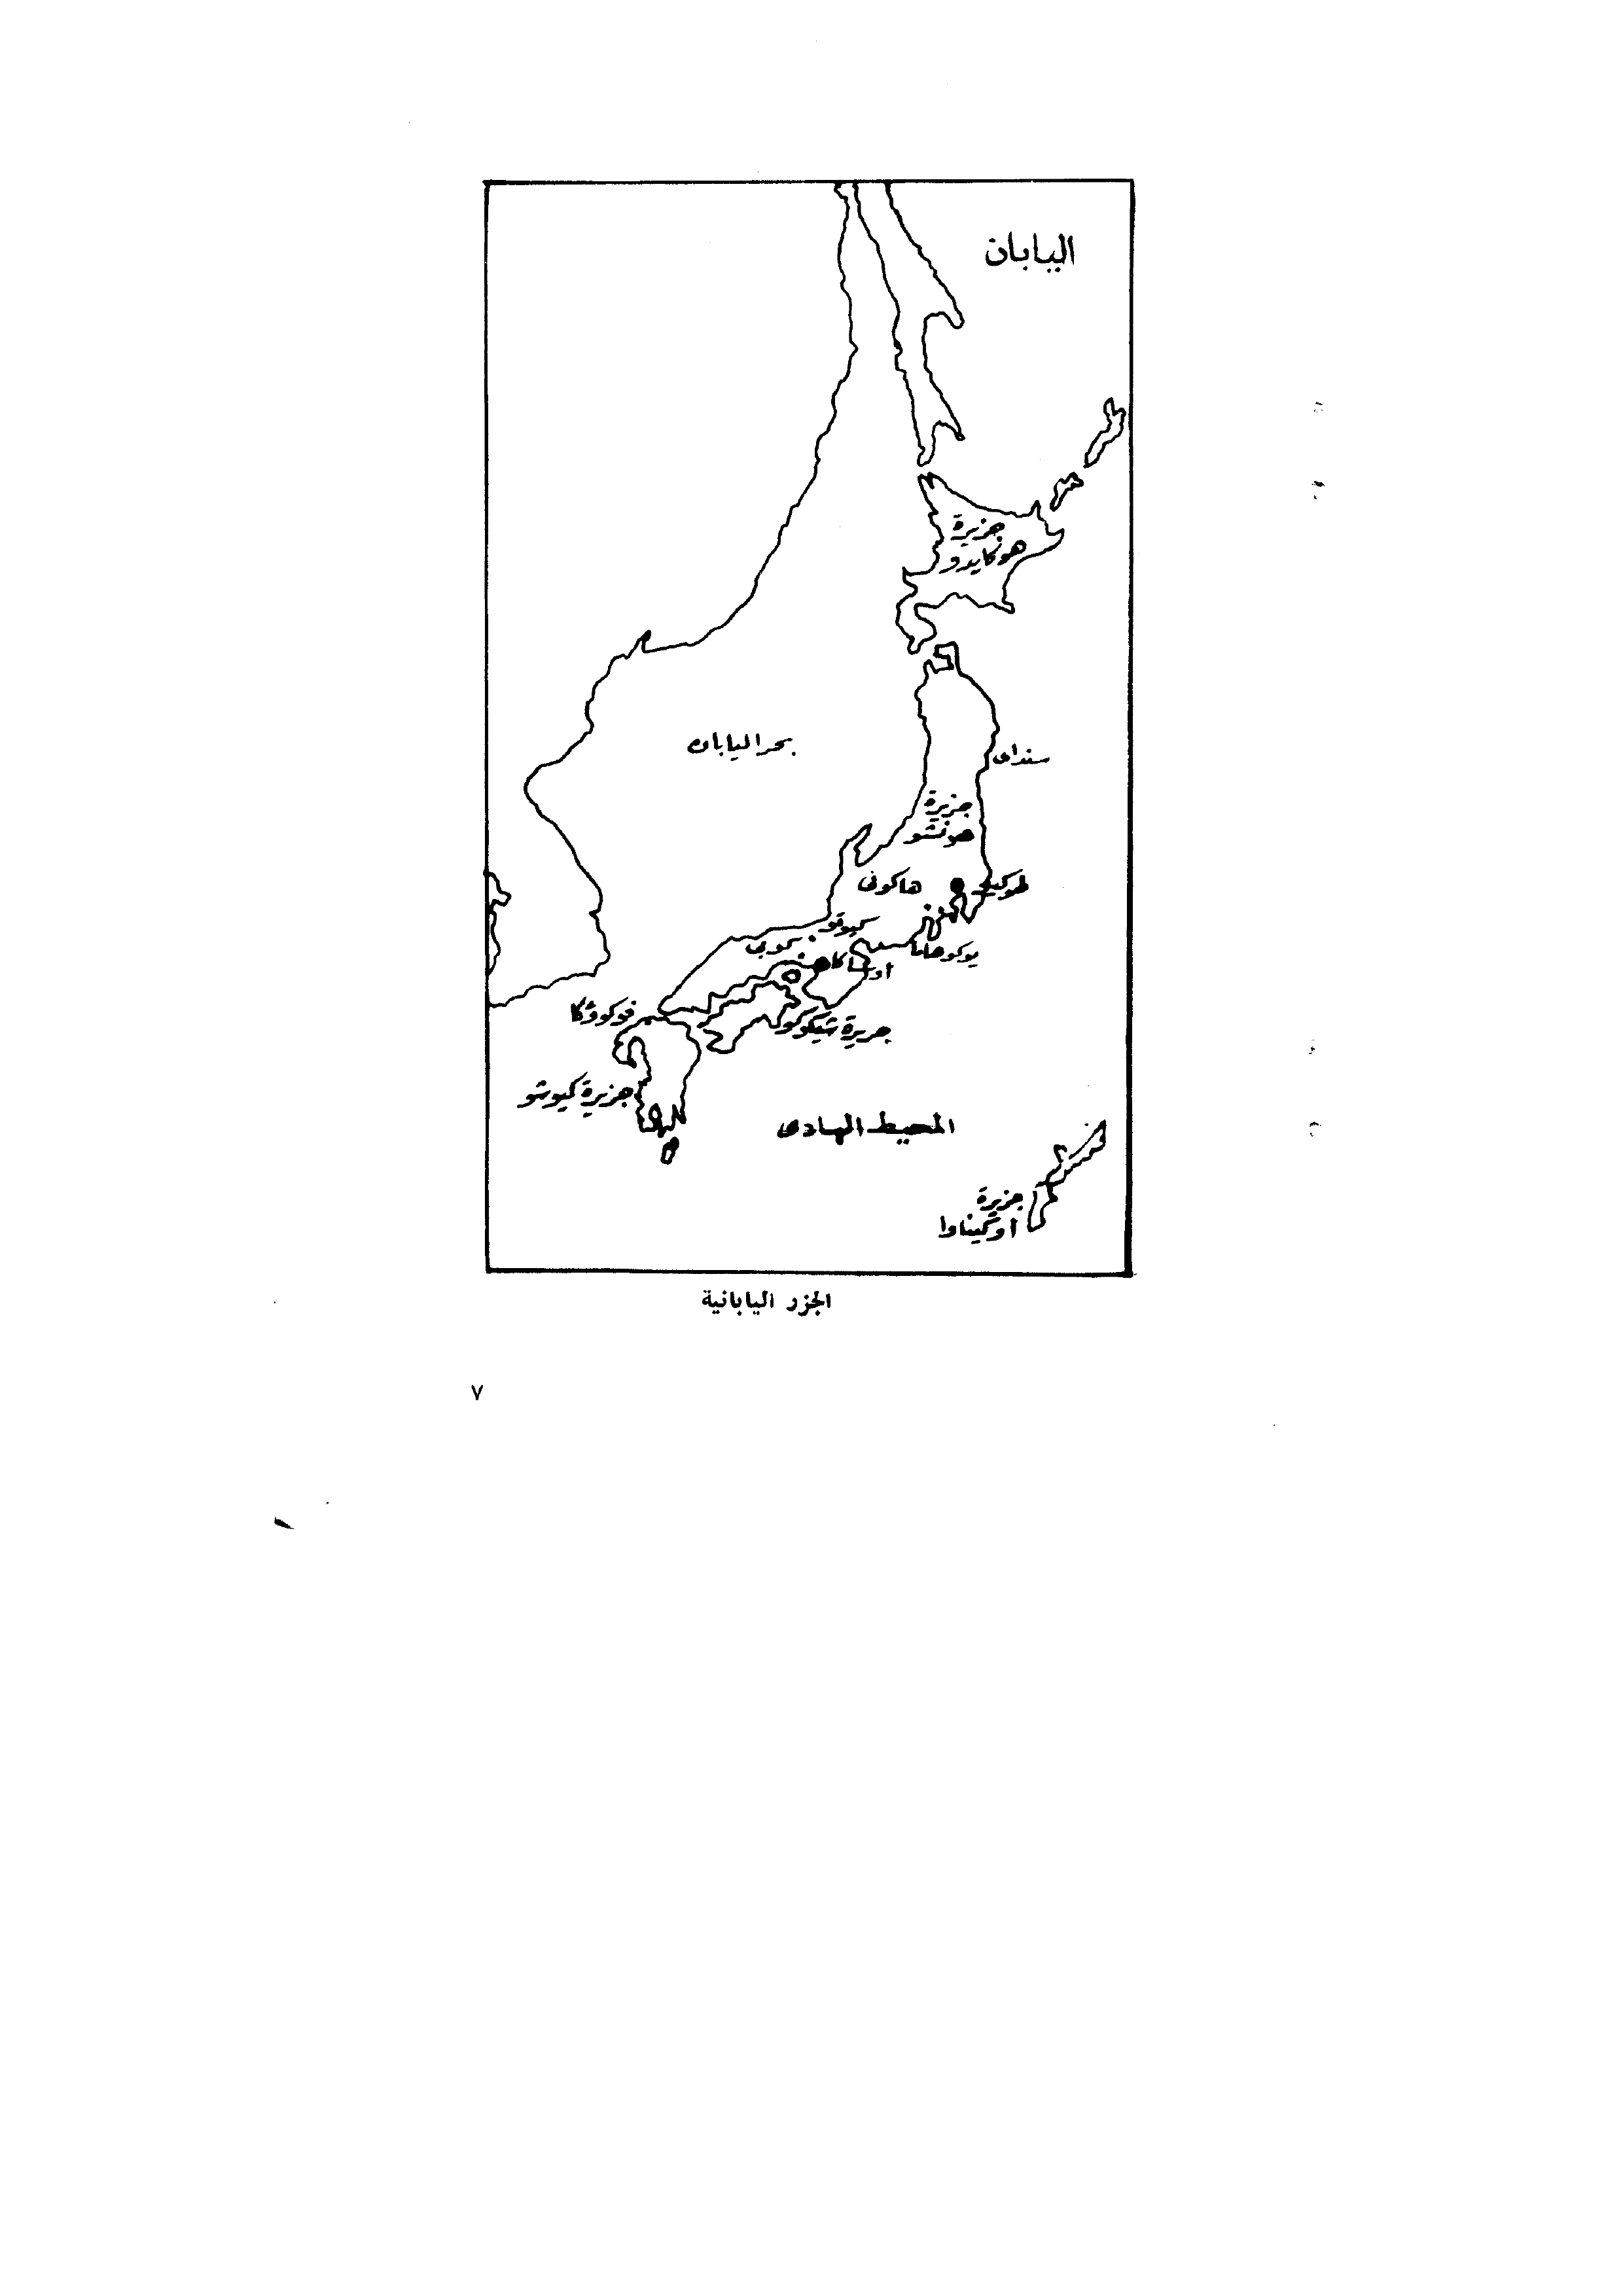 اليابان
جزيرة
هونكايدو
بحر اليابان
سنداى
جزيرة
هونشو
طوكيو
هاكونى
كيوتو
كوبى
يوكوهاما
أوساكا
فوكووكا
جزيرة شيكوكو
جزيرة كيوشو
المحيط الهادى
جزيرة
أوكيناوا
الجزر اليابانية
٧